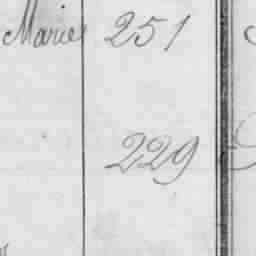 Marie 251
229